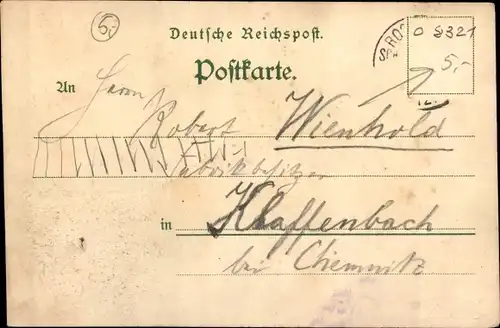 5.-
Deutsche Reichspost.
Postkarte.
O 8321
5,-
An Herrn
Robert Wienhold
Fabrikbesitzer
in Klaffenbach
bei Chemnitz